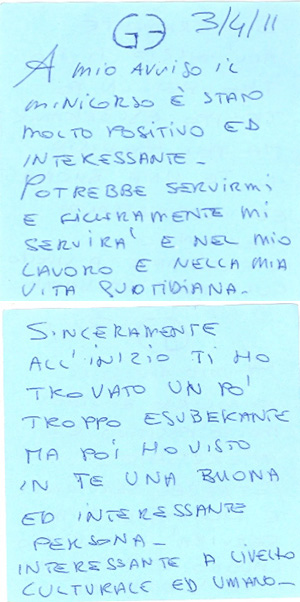 G3 3/4/11
A MIO AVVISO IL
MINICORSO È STATO
MOLTO POSITIVO ED
INTERESSANTE.
POTREBBE SERVIRMI
E SICURAMENTE MI
SERVIRA' E NEL MIO
LAVORO E NELLA MIA
VITA QUOTIDIANA.
SINCERAMENTE
ALL'INIZIO TI HO
TROVATO UN PO'
TROPPO ESUBERANTE
MA POI HO VISTO
IN TE UNA BUONA
ED INTERESSANTE
PERSONA.
INTERESSANTE A LIVELLO
CULTURALE ED UMANO.